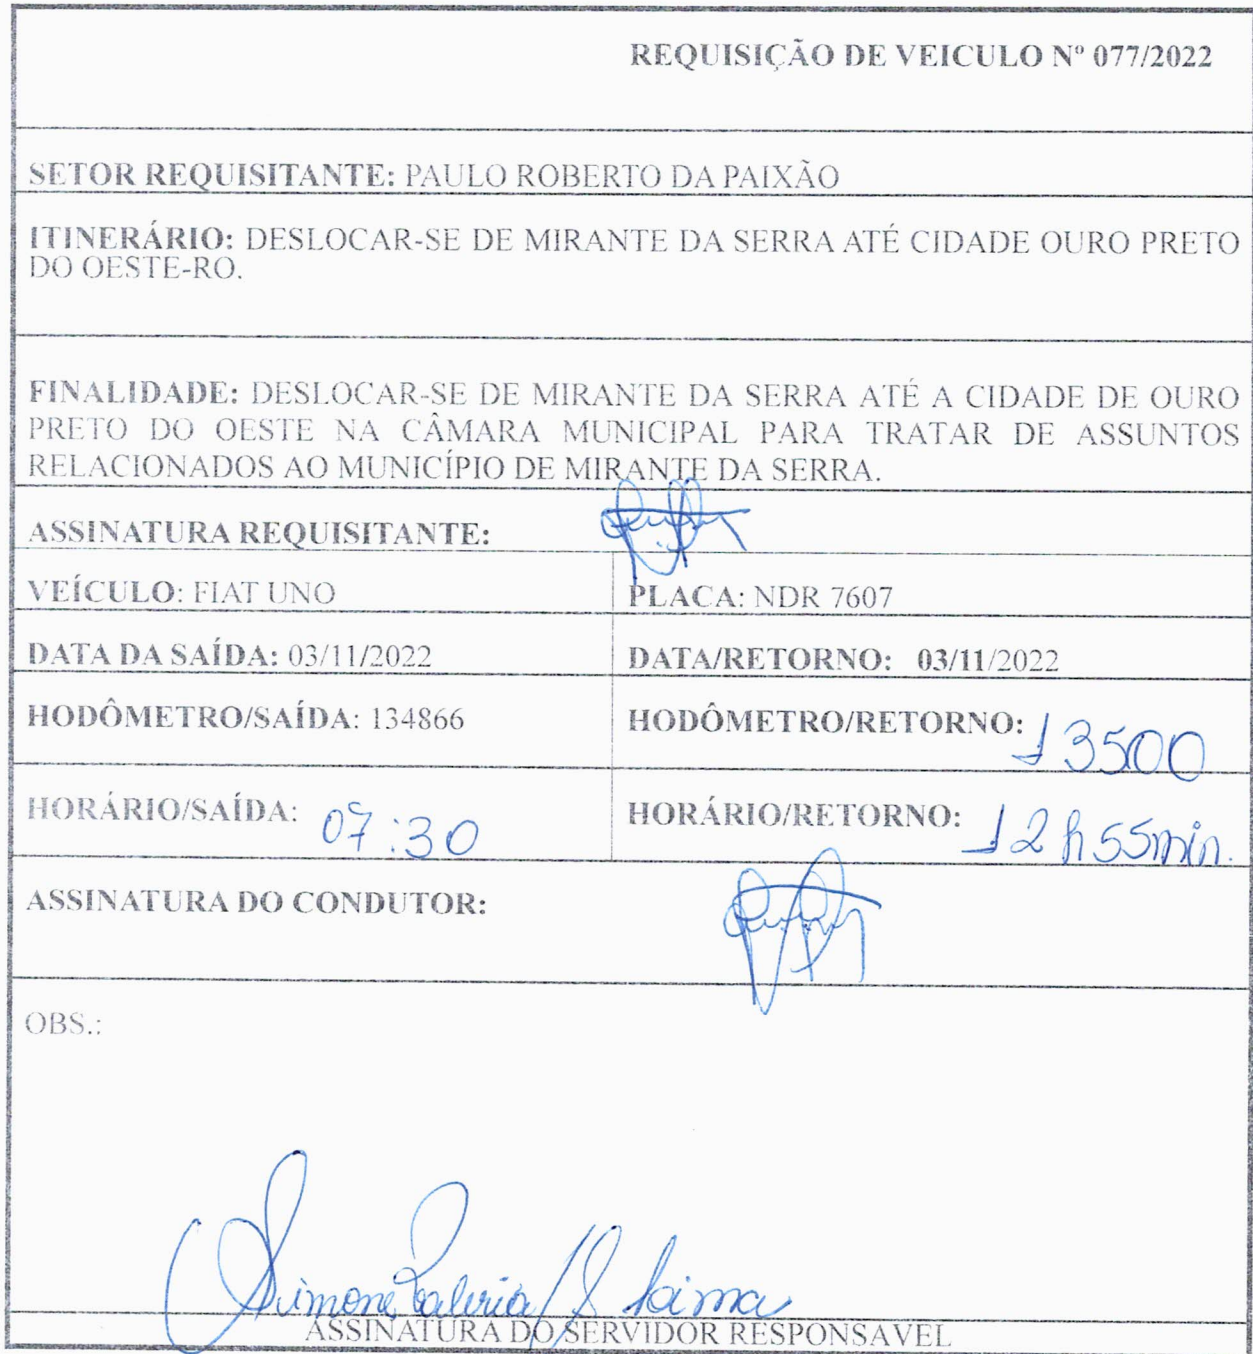 REQUISIÇÃO DE VEICULO Nº 077/2022
SETOR REQUISITANTE: PAULO ROBERTO DA PAIXÃO
ITINERÁRIO: DESLOCAR-SE DE MIRANTE DA SERRA ATÉ CIDADE OURO PRETO
DO OESTE-RO.
FINALIDADE: DESLOCAR-SE DE MIRANTE DA SERRA ATÉ A CIDADE DE OURO
PRETO DO OESTE NA CÂMARA MUNICIPAL PARA TRATAR DE ASSUNTOS
RELACIONADOS AO MUNICÍPIO DE MIRANTE DA SERRA.
ASSINATURA REQUISITANTE:
VEÍCULO: FIAT UNO
PLACA: NDR 7607
DATA DA SAÍDA: 03/11/2022
DATA/RETORNO: 03/11/2022
HODÔMETRO/SAÍDA: 134866
HODÔMETRO/RETORNO: 13500
HORÁRIO/SAÍDA: 07:30
HORÁRIO/RETORNO: 12h55min.
ASSINATURA DO CONDUTOR:
OBS.:
Simone Lima
ASSINATURA DO SERVIDOR RESPONSAVEL